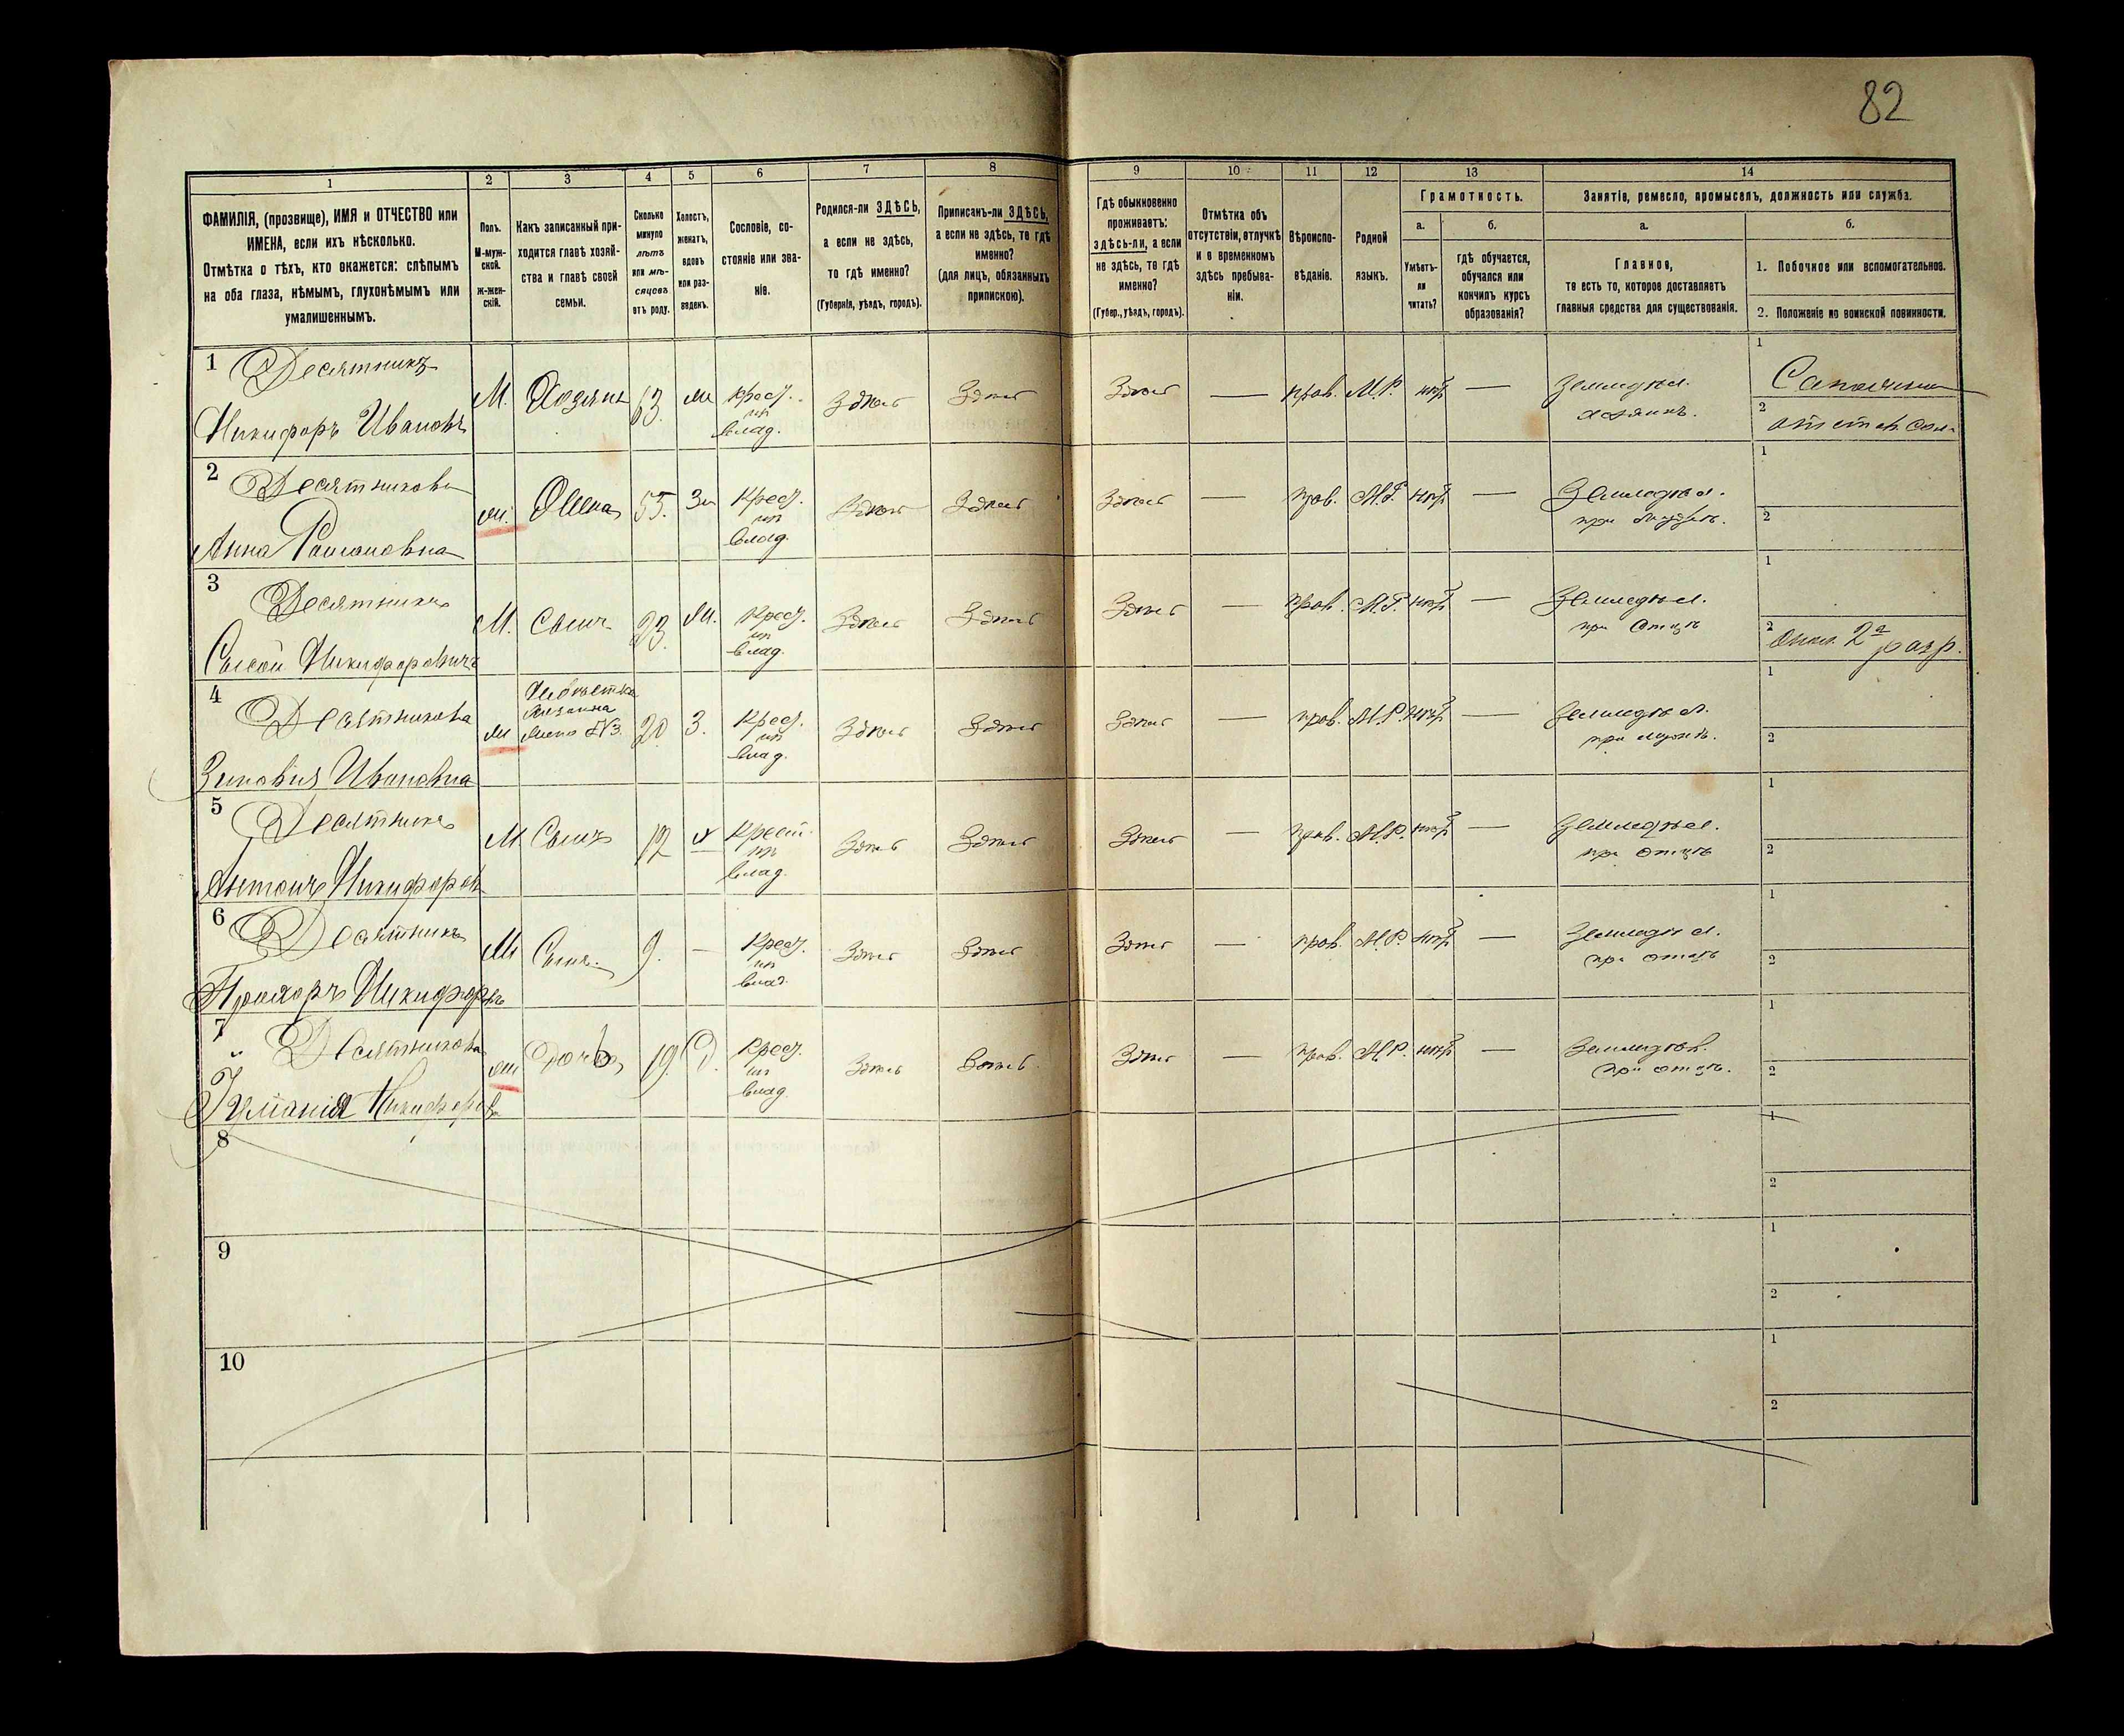 82
1 2 3 4 5 6 7 8 9 10 11 12 13 14
ФАМИЛІЯ, (прозвище), ИМЯ и ОТЧЕСТВО или
ИМЕНА, если ихъ нѣсколько.
Отмѣтка о тѣхъ, кто окажется: слѣпымъ
на оба глаза, нѣмымъ, глухонѣмымъ или
умалишеннымъ.
Полъ.
М-муж-
ской.
ж-жен-
скій.
Какъ записанный при-
ходится главѣ хозяй-
ства и главѣ своей
семьи.
Сколько
минуло
лѣтъ
или мѣ-
сяцовъ
отъ роду.
Холостъ,
женатъ,
вдовъ
или раз-
веденъ.
Сословіе, со-
стояніе или зва-
ніе.
Родился-ли ЗДѢСЬ,
а если не здѣсь,
то гдѣ именно?
(Губернія, уѣздъ, городъ).
Приписанъ-ли ЗДѢСЬ,
а если не здѣсь, то гдѣ
именно?
(для лицъ, обязанныхъ
припискою).
Гдѣ обыкновенно
проживаетъ:
здѣсь-ли, а если
не здѣсь, то гдѣ
именно?
(Губер., уѣздъ, городъ).
Отмѣтка объ
отсутствіи, отлучкѣ
и о временномъ
здѣсь пребыва-
ніи.
Вѣроиспо-
вѣданіе.
Родной
языкъ.
Грамотность.
а.
Умѣетъ-
ли
читать?
б.
гдѣ обучается,
обучался или
кончилъ курсъ
образованія?
Занятіе, ремесло, промыселъ, должность или служба.
а.
Главное,
то есть то, которое доставляетъ
главныя средства для существованія.
б.
1. Побочное или вспомогательное.
2. Положеніе по воинской повинности.
1 Десятникъ
Никифоръ Ивановъ
М. Хозяинъ 63. жи Крест. Здѣсь Здѣсь Здѣсь — прав. М.Р. нѣтъ — Земледѣл.
из
влад.
хозяинъ.
1
2
2 Десятникова
Анна Романовна
жи. Жена 55. За Крест. Здѣсь Здѣсь Здѣсь — прав. М.Р. нѣтъ — Земледѣл.
из
влад.
при
1
2
3 Десятникъ
Сысой Никифоровичъ
М. Сынъ 23. Жи. Крест. Здѣсь Здѣсь Здѣсь — прав. М.Р. нѣтъ — Земледѣл.
из
влад.
при отцѣ
1
2 2а разр.
4 Десятникова
Зиновія Ивановна
жи Невѣстка
жена №3. 20 З. Крест. Здѣсь Здѣсь Здѣсь — прав. М.Р. нѣтъ — Земледѣл.
из
влад.
при мужѣ.
1
2
5 Десятникъ
Антонъ Никифоров
М Сынъ 12 х Крест. Здѣсь Здѣсь Здѣсь — прав. М.Р. нѣтъ — Земледѣл.
из
влад.
при отцѣ
1
2
6 Десятникъ
Прохоръ Никифоровъ
М Сынъ. 9. — Крест. Здѣсь Здѣсь Здѣсь — прав. М.Р. нѣтъ — Земледѣл.
из
влад.
при отцѣ
1
2
7 Десятникова
Никифорова
жи Дочь 19. Д. Крест. Здѣсь Здѣсь Здѣсь — прав. М.Р. нѣтъ — Земледѣл.
из
влад.
при отцѣ.
1
2
8
1
2
9
1
2
10
1
2